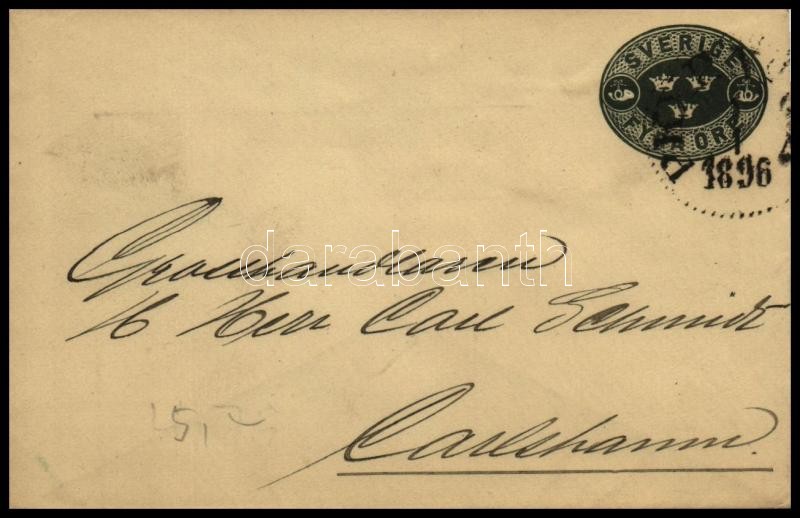 SVERIGE
FYRA ÖRE
1896
Grosshandlaren
H Herr Carl Schmidt
Carlshamn.
darabanth